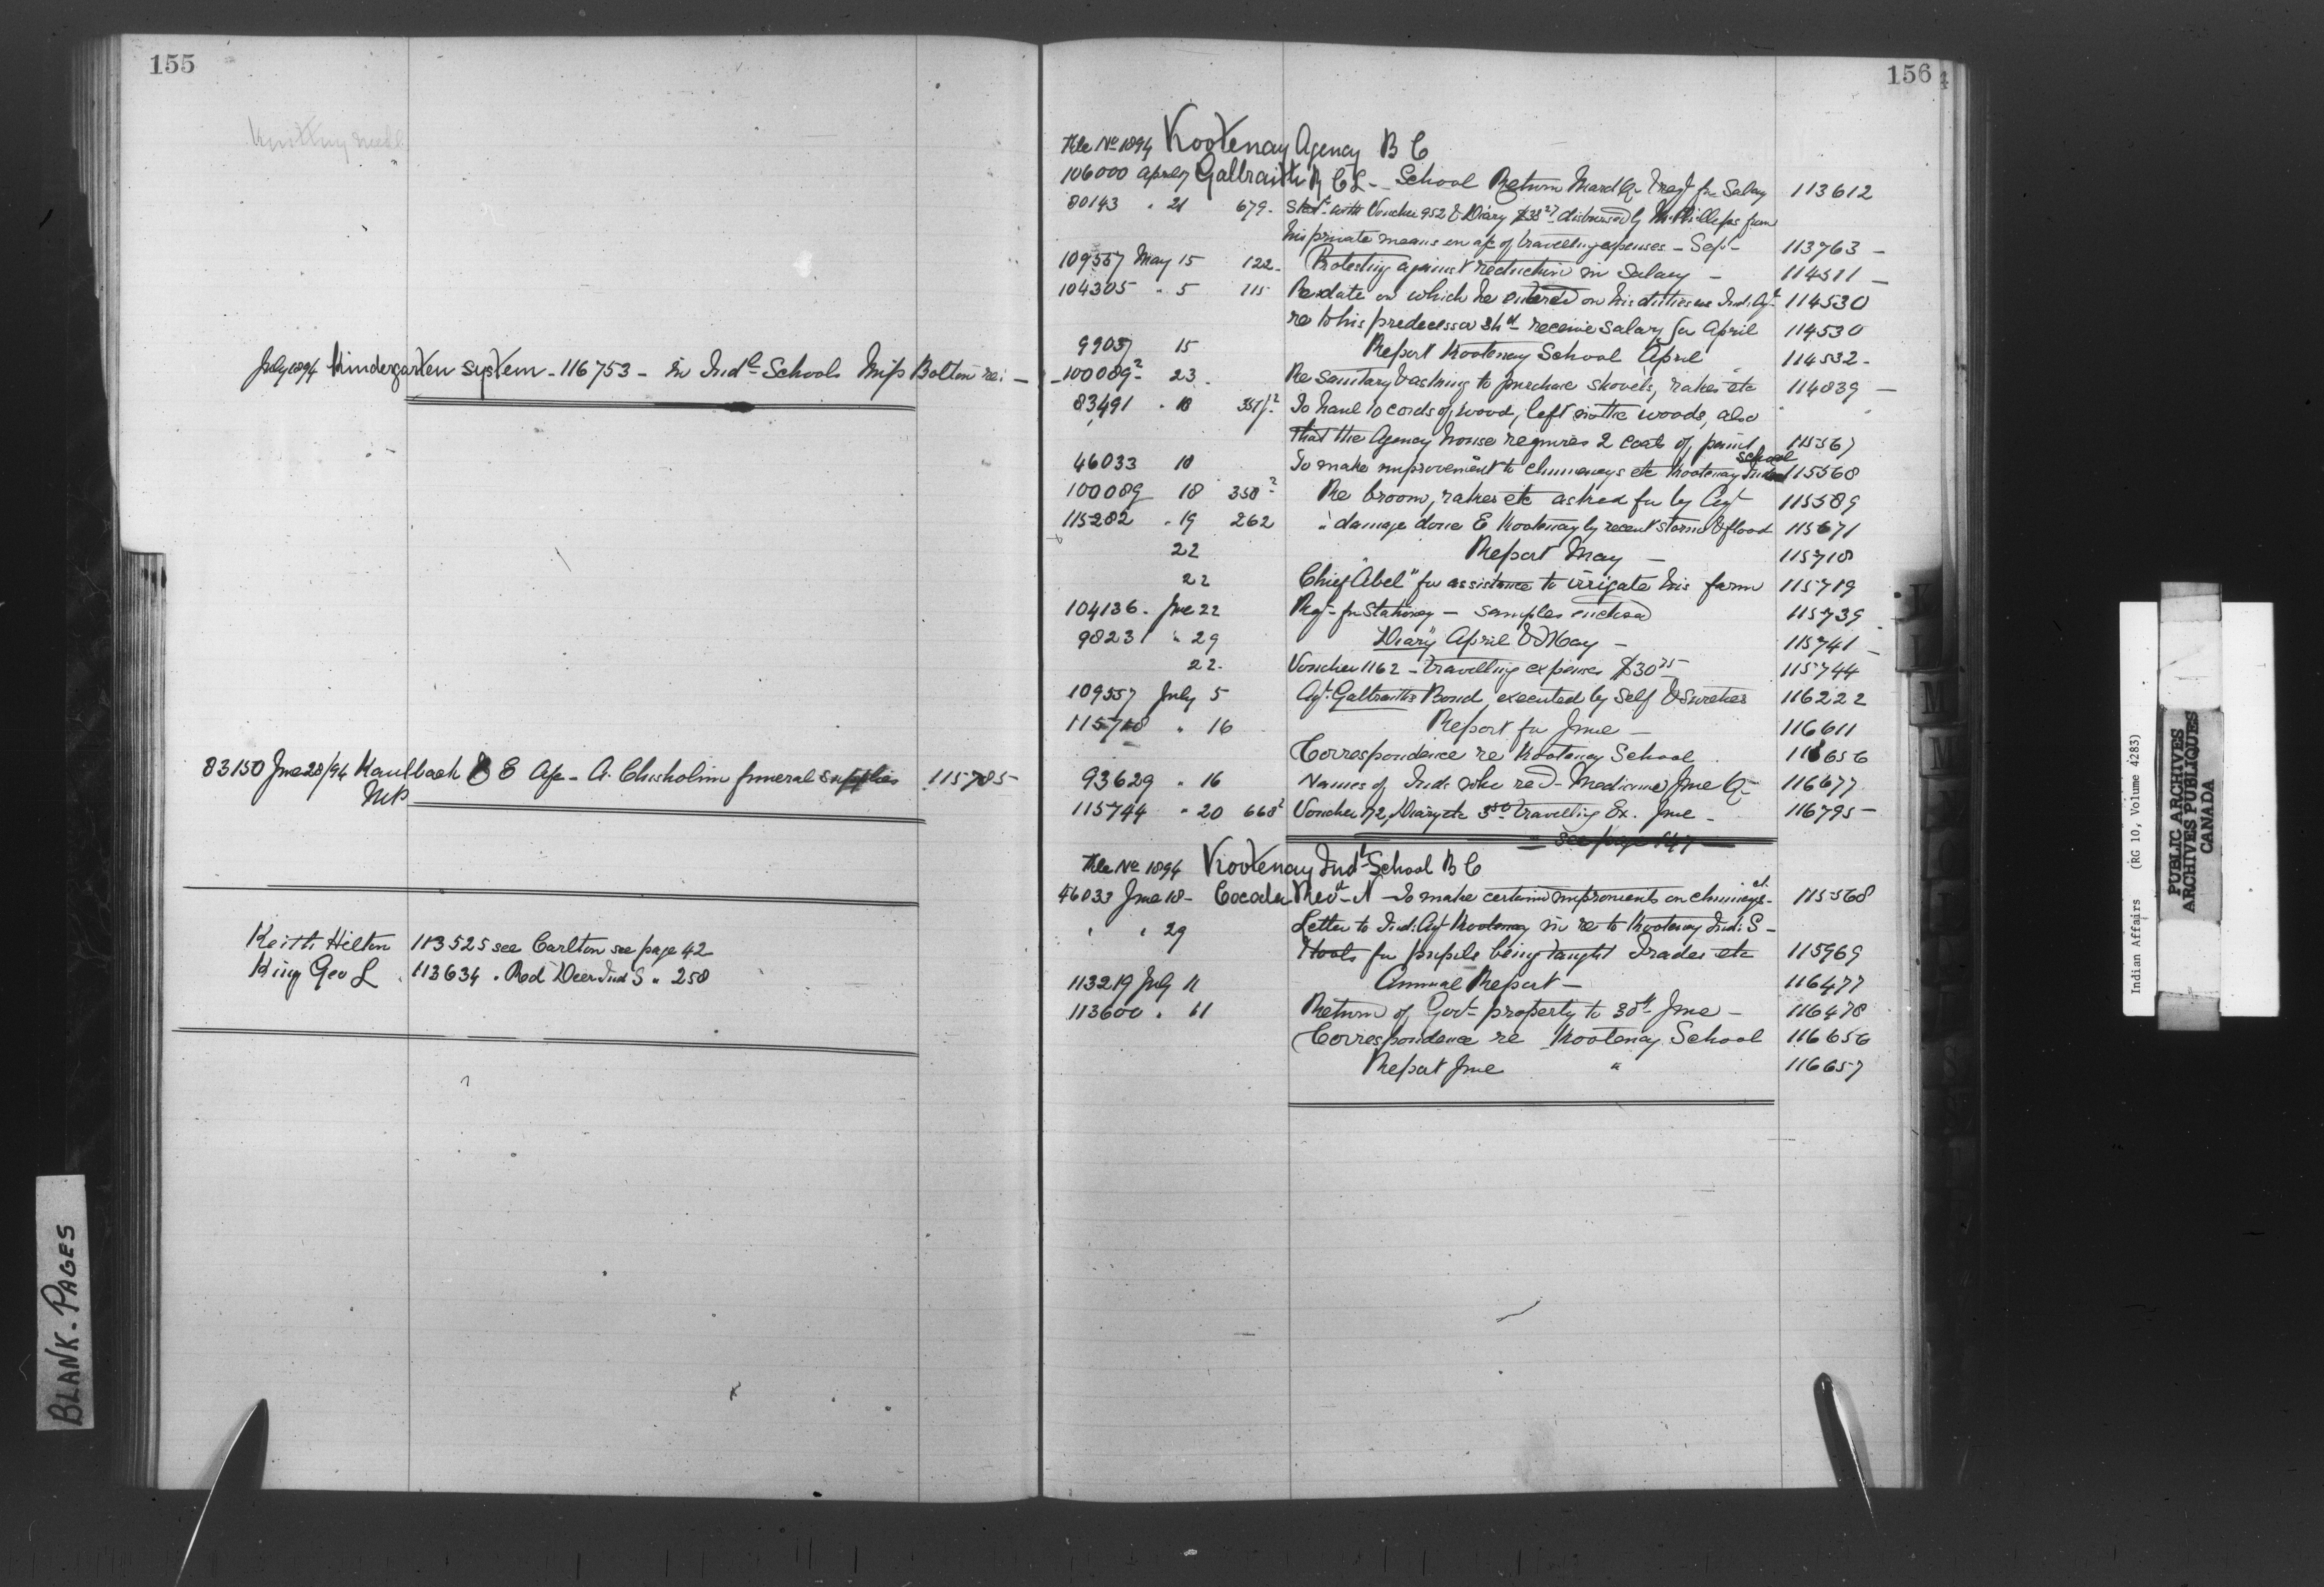 155
July 1894 Kindergarten system - 116753 - in Indn Schools Miss Bolton re: -
83150 Jne 28/94 Kaulbach C E A/c - A. Chisholm funeral supplies 115785
M.P.
Keith Hilton 113525 see Carlton see page 42
King Geo L 113634 " Red Deer Ind S " 258
BLANK-PAGES
156
File No 1894 Kootenay Agency B C
106000 April 7 Galbraith R C L - School Return March Qr & reqt for Salary 113612
80143 " 21 679 - Statt with Voucher 952 & Diary $38 27 disbursed by M. Phillipps from
his private means on a/c of travelling expenses - Sep - 113763 -
109557 May 15 122 - Protesting against reduction in Salary - 114511 -
104305 " 5 115 Re date on which he entered on his duties as Ind. Agt 114530
re to his predecessor shd receive salary for April 114530
9903/ 15 Report Kootenay School April 114532 -
100089-2 - 23 - Re Sanitary & asking to purchase shovels, rakes etc 114839 -
83491 " 18 To haul 10 cords of wood, left in the woods, also
that the Agency house requires 2 coats of paint 115567
46033 18 To make improvement to chimneys etc Kootenay Indn School 115568
100089 18 358 2 Re broom, rakes etc asked for by Agt 115589
115282 " 19 262 " damage done E Kootenay by recent storm & flood 115671
22 Report May - 115718
22 "Chief Abel" for assistance to irrigate his farm 115719
104136 - Jne 22 Reqt for Stationery - samples enclosed 115739
9823/ " 29 "Diary" April & May - 115741 -
22 - Voucher 1162 - travelling expenses $30 75 - 115744
109557 July 5 Agt Galbraith's Bond, executed by Self & Sureties 116222
115718 " 16 Report for June - 116611
Correspondence re Kootenay School 116656
93629 " 16 Names of Inds who recd - Medicine June Qr 116677
115744 " 20 668 2 Voucher 72, Diary etc 3 50 travelling Ex. June - 116795 -
- see page 147 -
File No 1894 Kootenay Indl School B C
46033 June 18 - Coccola Revd N - To make certain improvements on chimneys - 115568
" " 29 Letter to Ind. Agt Kootenay in re to Kootenay Ind. S -
& tools for pupils being taught trades etc 115969
113219 July 11 Annual Report - 116477
113600 " 11 Return of Govt property to 30th June - 116478
Correspondence re Kootenay School 116656
Report June " 116657
Indian Affairs (RG 10, Volume 4283)
PUBLIC ARCHIVES
ARCHIVES PUBLIQUES
CANADA